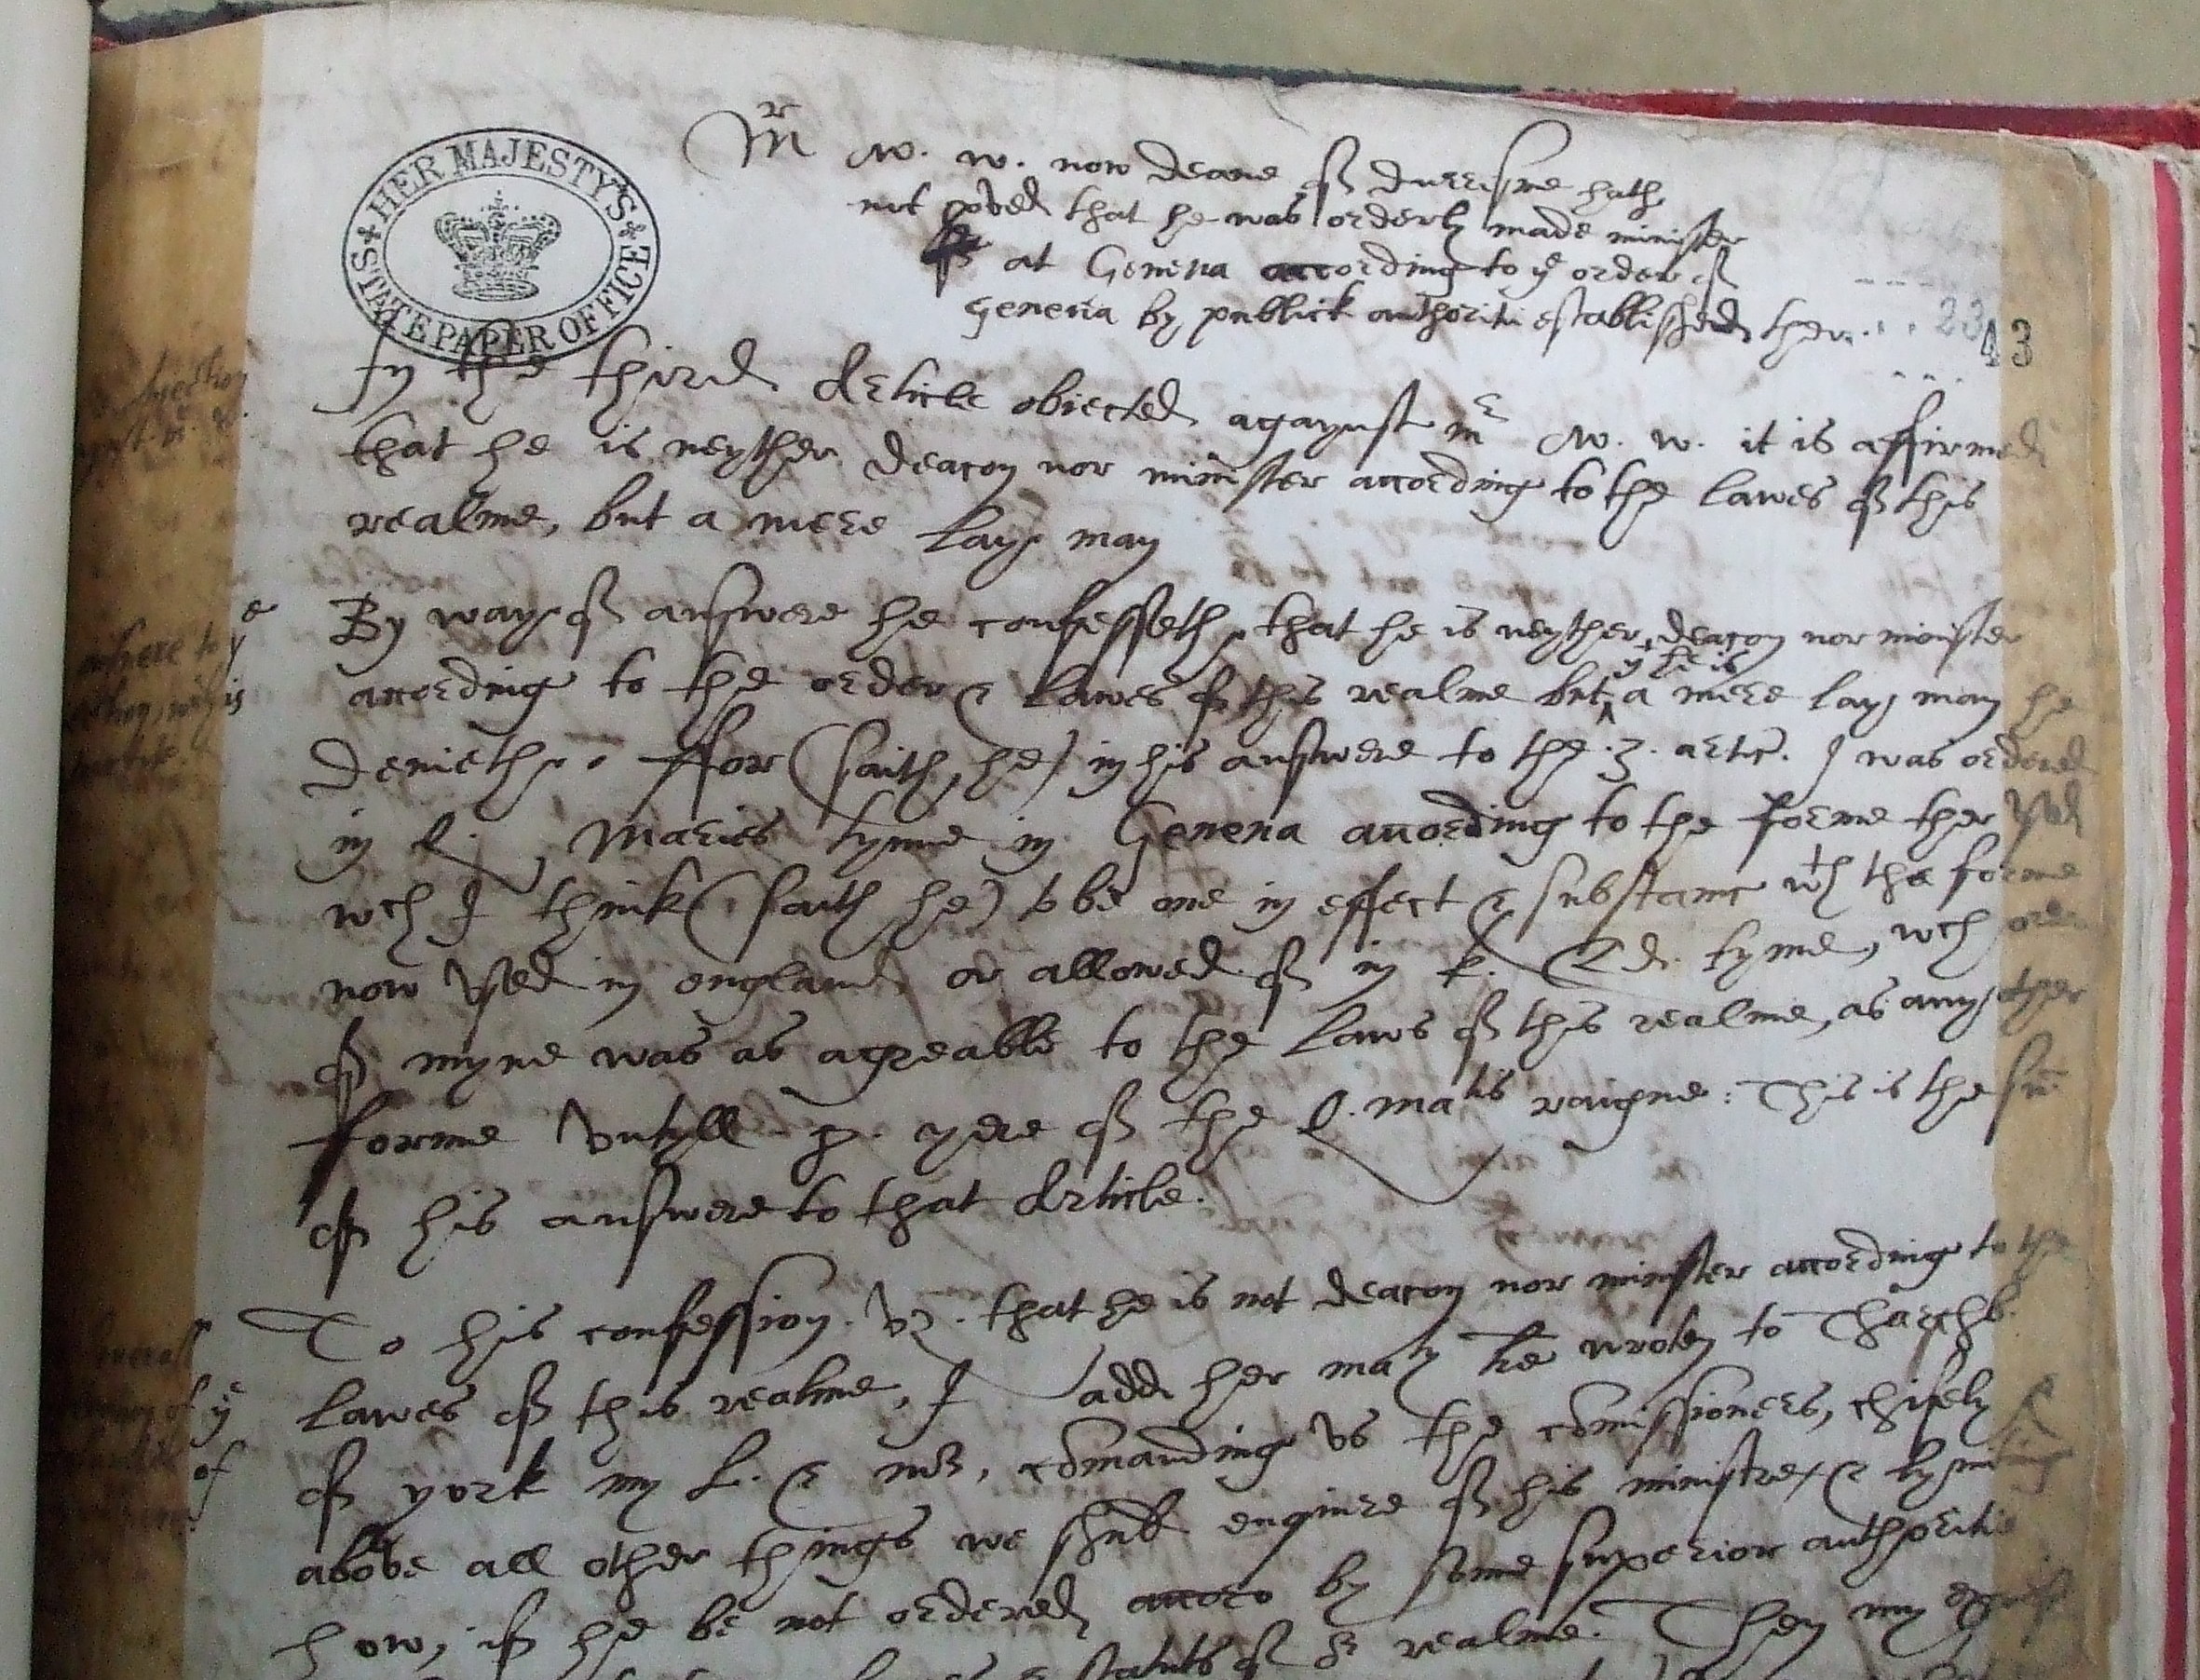 HER MAJESTY'S STATE PAPER OFFICE
Mr W. w. now deane of duresme hath
not proved that he was orderly made minister
at Geneva according to ye order of
Geneva by publick authoritie established ther.
23
43
In the third Article obiected agaynst mr W. w. it is affirmed
that he is neyther deacon nor minister according to the lawes of this
realme, but a mere lay man
By way of answere he confesseth, that he is neyther deacon nor minister
according to the order & lawes of this realme but yt he is a mere lay man he
denieth. ffor (saith he) in his answere to the .3. artic. I was ordered
in Q. Maries tyme in Geneva according to the forme ther vsed
wch I think (saith he) to be one in effect & substance wth the forme
now vsed in england or allowed of in k. Ed. tyme, wch order
of myne was as agreable to the laws of this realme, as any other
forme vntyll yere of the Q. matis raigne: This is the
of his answere to that Article.
To his confession. vz. that he is not deacon nor minister according to the
lawes of this realme, I add her maty wrote to Tharchb.
of york my L. & commanding vs the commissioners, chifely
above all other things we shuld enquire of his ministrie, &
how, if he be not ordered by some superior authoritie
statuts of realme. Then my